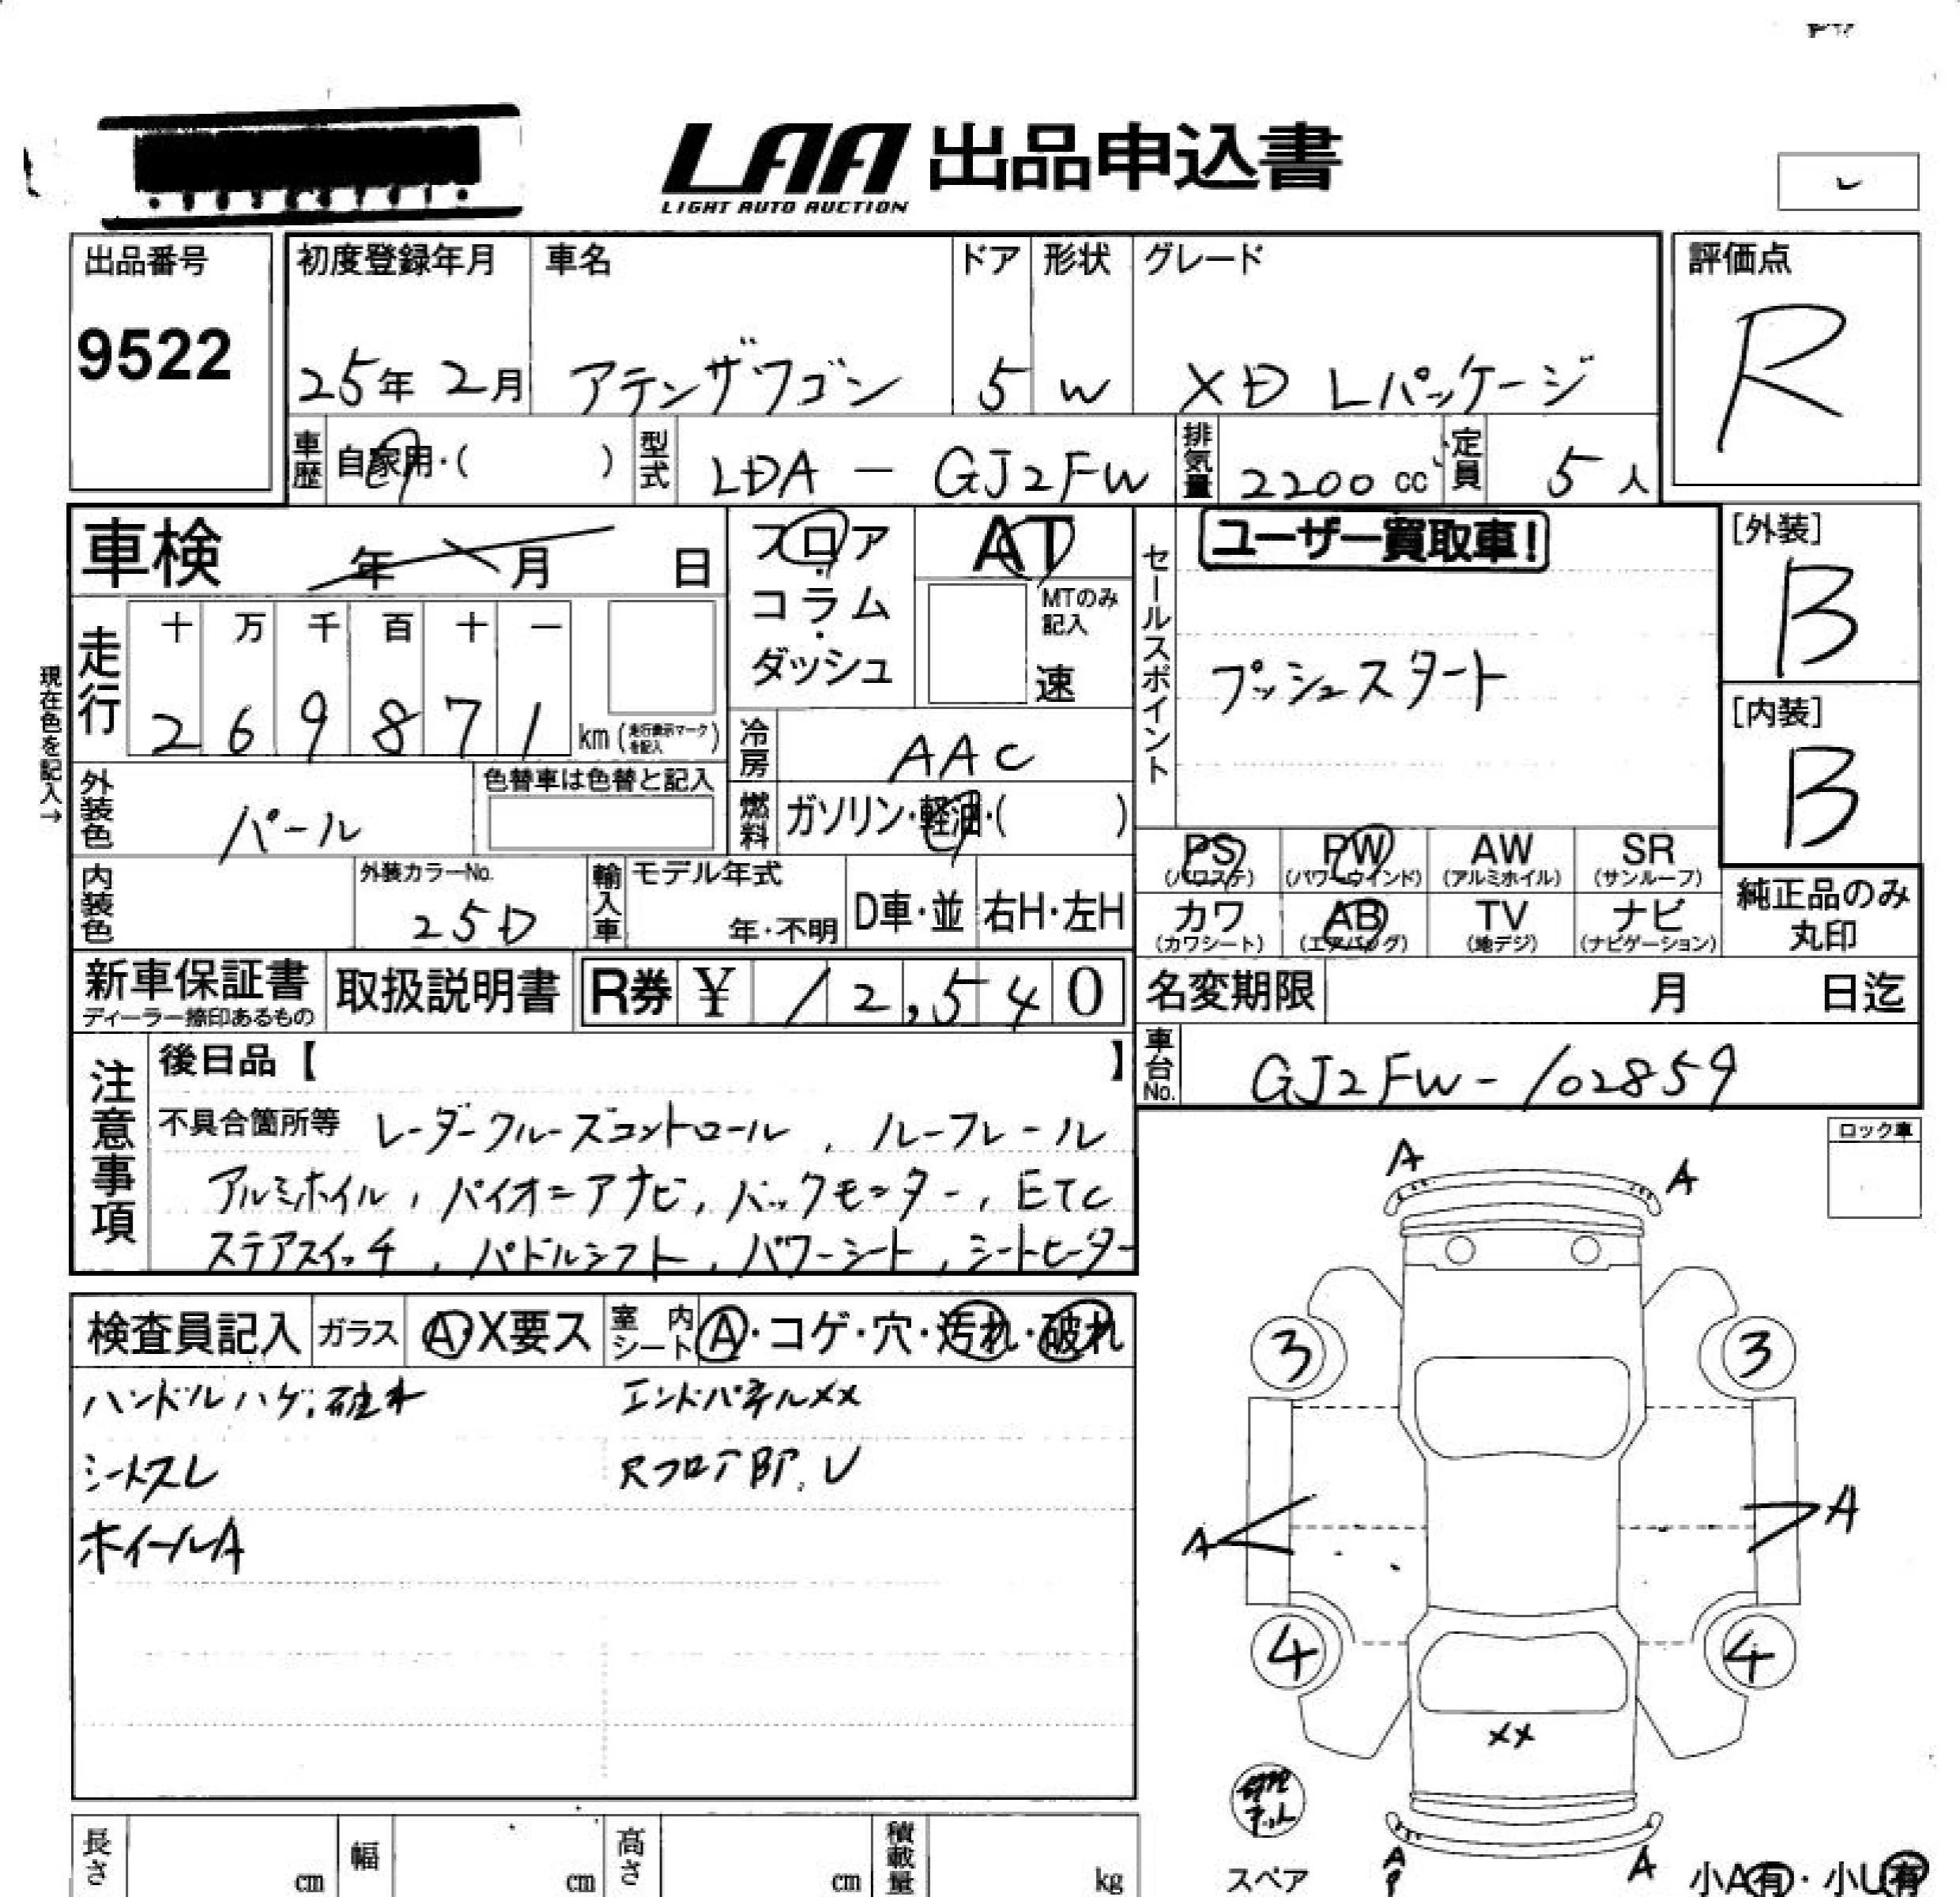 LAA 出品申込書
LIGHT AUTO AUCTION
出品番号
9522
初度登録年月 車名 ドア 形状 グレード
25年 2月 アテンザワゴン 5 W XD Lパッケージ
評価点
R
車歴 自家用・( ) 型式 LDA - GJ2FW 排気量 2200 cc 定員 5 人
車検 年 月 日
フロア・コラム・ダッシュ
AT
MTのみ記入
速
セールスポイント
ユーザー買取車!
プッシュスタート
[外装]
B
[内装]
B
現在色を記入→
走行 十 万 千 百 十 一
2 6 9 8 7 1 km (走行表示マークを記入)
冷房 AAC
燃料 ガソリン・軽油・( )
外装色 パール 色替車は色替と記入
内装色 外装カラーNo. 25D
輸入車 モデル年式 年・不明 D車・並 右H・左H
PS (パワステ) PW (パワーウインド) AW (アルミホイル) SR (サンルーフ)
カワ (カワシート) AB (エアバッグ) TV (地デジ) ナビ (ナビゲーション)
純正品のみ丸印
新車保証書 ディーラー捺印あるもの 取扱説明書 R券 ¥ 12,540
名変期限 月 日迄
車台No. GJ2FW-102859
注意事項
後日品【 】
不具合箇所等 レーダークルーズコントロール, ルーフレール
アルミホイル, パイオニアナビ, バックモニター, ETC
ステアスイッチ, パドルシフト, パワーシート, シートヒーター
ロック車
検査員記入 ガラス A・X要ス 室内シート A・コゲ・穴・汚れ・破れ
ハンドルハゲ,破れ エンドパネルXX
シートスレ Rフロア部,U
ホイールA
A A
3 3
A A
4 4
XX
スペア
A A
小A有・小U有
長さ cm 幅 cm 高さ cm 積載量 kg